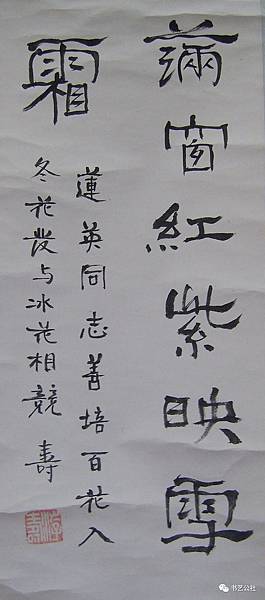 滿窗紅紫映雪
霜
蓮英同志善培百花入
冬花發与冰花相競 壽
书艺公社